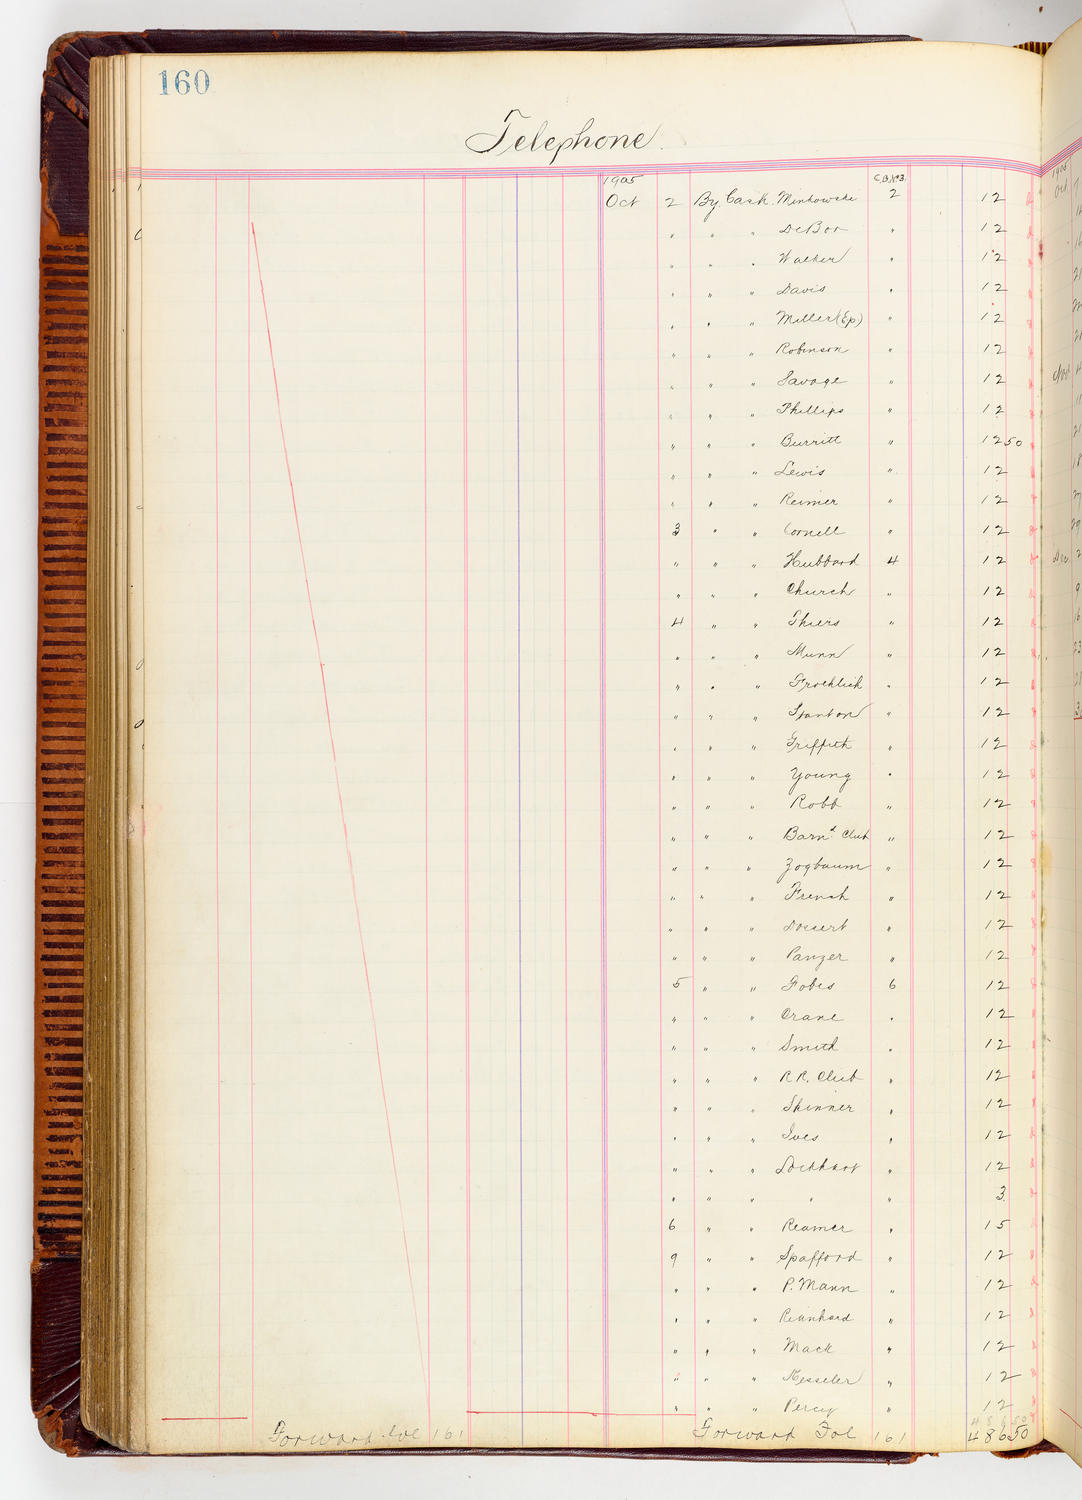 160
Telephone.
1905 C.B. No 3.
Oct 2 By Cash Minkowski 2 12
" " " DeBor " 12
" " " Walker " 12
" " " Davis " 12
" " " Miller (Ep) " 12
" " " Robinson " 12
" " " Savage " 12
" " " Phillips " 12
" " " Burritt " 12 50
" " " Lewis " 12
" " " Reimer " 12
3 " " Cornell " 12
" " " Hubbard 4 12
" " " Church " 12
4 " " Thiers " 12
" " " Munn " 12
" " " Froehlich " 12
" " " Stanton " 12
" " " Griffith " 12
" " " Young " 12
" " " Robb " 12
" " " Barnd Club " 12
" " " Zogbaum " 12
" " " French " 12
" " " Dossert " 12
" " " Panzer " 12
5 " " Fobes 6 12
" " " Crane " 12
" " " Smith " 12
" " " R.R. Club " 12
" " " Skinner " 12
" " " Ives " 12
" " " Lockhart " 12
" " " " " 3
6 " " Reamer " 15
9 " " Spafford " 12
" " " P. Mann " 12
" " " Reinhard " 12
" " " Mack " 12
" " " Kesseler " 12
" " " Percy " 12
486 50
Forward Fol 161 Forward Fol 161 486 50